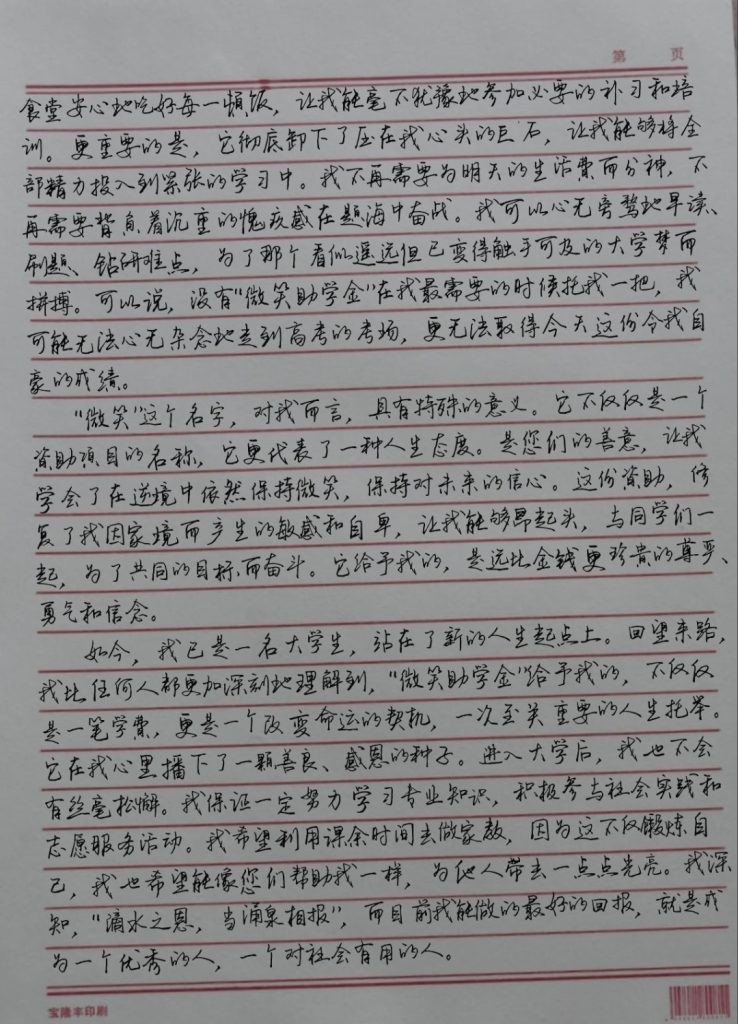 第 页
食堂安心地吃好每一顿饭，让我能毫不犹豫地参加必要的补习和培
训。更重要的是，它彻底卸下了压在我心头的巨石，让我能够将全
部精力投入到紧张的学习中。我不再需要为明天的生活费而分神，不
再需要背负着沉重的愧疚感在题海中奋战。我可以心无旁骛地早读、
刷题、钻研难点，为了那个看似遥远但已变得触手可及的大学梦而
拼搏。可以说，没有“微笑助学金”在我最需要的时候托我一把，我
可能无法心无杂念地走到高考的考场，更无法取得今天这份令我自
豪的成绩。
“微笑”这个名字，对我而言，具有特殊的意义。它不仅仅是一个
资助项目的名称，它更代表了一种人生态度。是您们的善意，让我
学会了在逆境中依然保持微笑，保持对未来的信心。这份资助，修
复了我因家境而产生的敏感和自卑，让我能够昂起头，与同学们一
起，为了共同的目标而奋斗。它给予我的，是远比金钱更珍贵的尊严、
勇气和信念。
如今，我已是一名大学生，站在了新的人生起点上。回望来路，
我比任何人都更加深刻地理解到，“微笑助学金”给予我的，不仅仅
是一笔学费，更是一个改变命运的契机，一次至关重要的人生托举。
它在我心里播下了一颗善良、感恩的种子。进入大学后，我也不会
有丝毫松懈。我保证一定努力学习专业知识，积极参与社会实践和
志愿服务活动。我希望利用课余时间去做家教，因为这不仅锻炼自
己，我也希望能像您们帮助我一样，为他人带去一点点光亮。我深
知，“滴水之恩，当涌泉相报”，而目前我能做的最好的回报，就是成
为一个优秀的人，一个对社会有用的人。
宝隆丰印刷